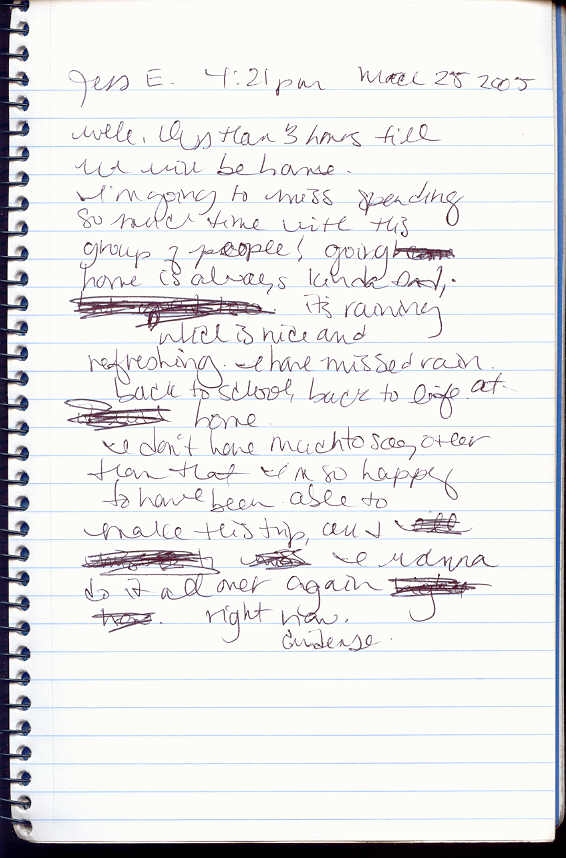 Jess E. 4:21pm March 25 2005
well. less than 3 hours till
we will be home.
I'm going to miss spending
so much time with this
group of people! going
home is always kinda sad,.
its raining
which is nice and
refreshing. I have missed rain.
back to school, back to life at
home.
I don't have much to say, other
than that I'm so happy
to have been able to
make this trip, and
I wanna
do it all over again
right now.